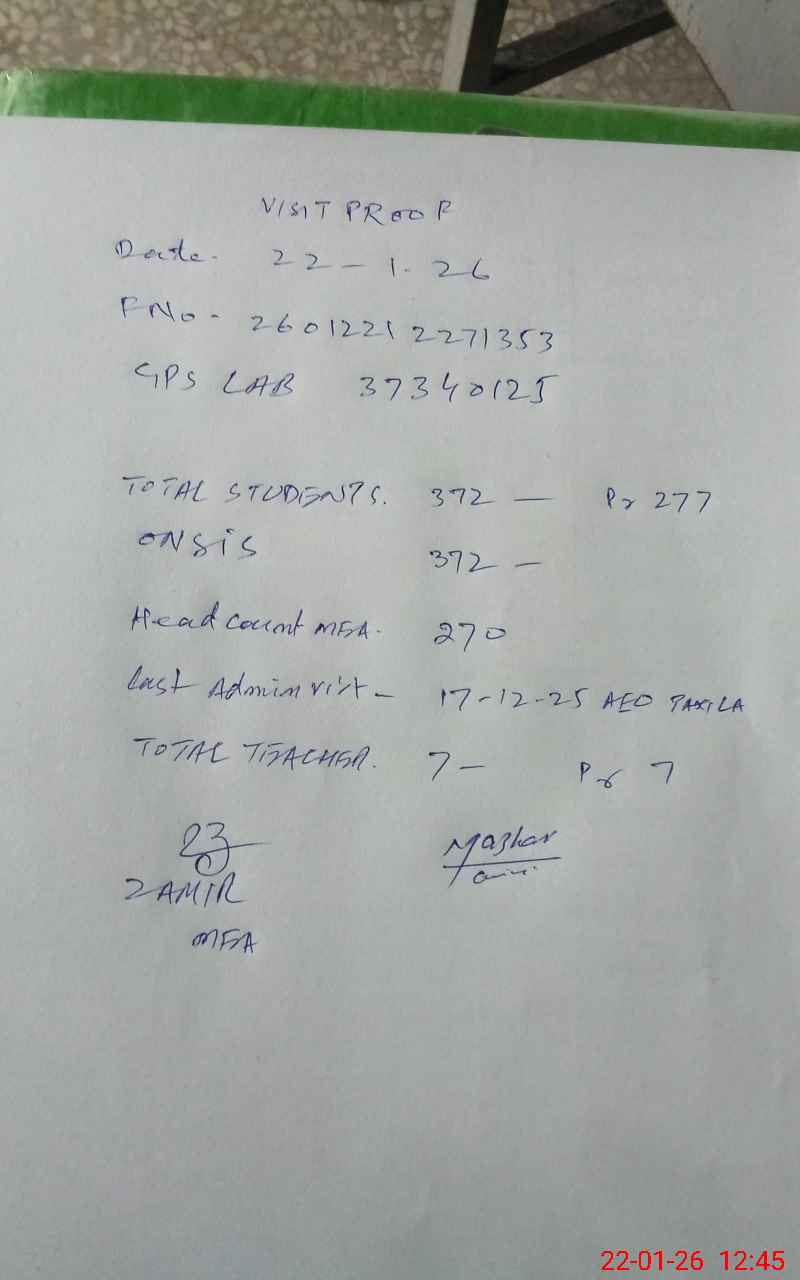 VISIT PROOF
Date. 22 - 1. 26
FNo - 2601221 2271353
GPS LAB 37340125
TOTAL STUDENTS. 372 — Pr 277
ON SIS 372 —
Head Count MEA. 270
Last Admin visit - 17-12-25 AEO TAXILA
TOTAL TEACHER. 7 — Pr 7
Mazhar
ZAMIR
MEA
22-01-26 12:45